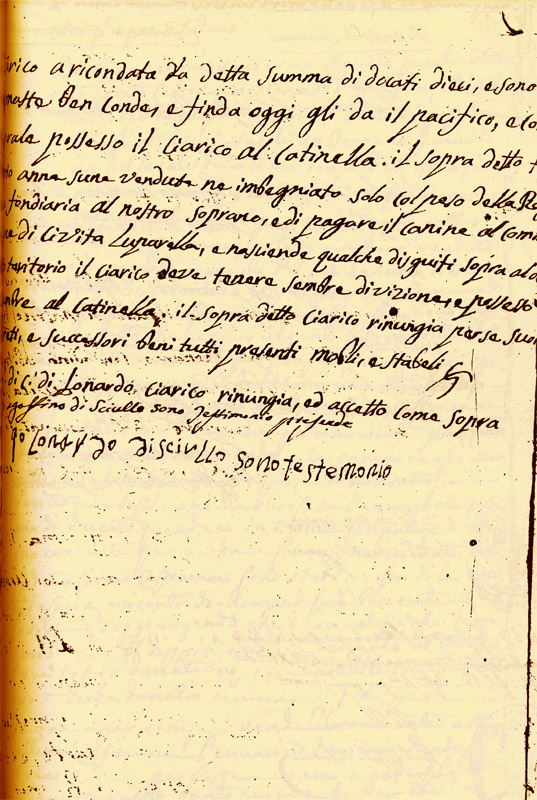 arico a ricondata da detta summa di docati dieci, e sono
matto ben Conde, e finda oggi gli da il pacifico, e co
rale possesso il Ciarico al Catinella. il sopra detto t
rio anna sune venduta ne imbegniato solo col peso della Re
fondiaria al nostro soprano, e di pagare il canine al Com
e di Civita Luparella, e nasciende qualche disguiti sopra al d
territorio il Ciarico deve tenere sembre divizione, e possesso
mbre al Catinella, il sopra detto Ciarico rinungia per se, suoi
redi, e successori beni tutti presenti mobli, e stabeli
di C. di Lonardo Ciarico rinungia, ed accetto come sopra
gostino di Sciullo sono Testimonio presende
Io Lonardo disciullo sono testemonio